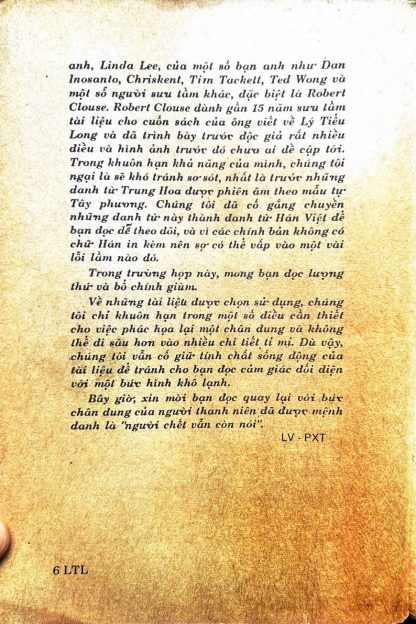 anh, Linda Lee, của một số bạn anh như Dan
Inosanto, Chriskent, Tim Tackett, Ted Wong và
một số người sưu tầm khác, đặc biệt là Robert
Clouse. Robert Clouse dành gần 15 năm sưu tầm
tài liệu cho cuốn sách của ông viết về Lý Tiểu
Long và đã trình bày trước độc giả rất nhiều
điều và hình ảnh trước đó chưa ai đề cập tới.
Trong khuôn hạn khả năng của mình, chúng tôi
ngại là sẽ khó tránh sơ sót, nhất là trước những
danh từ Trung Hoa được phiên âm theo mẫu tự
Tây phương. Chúng tôi đã cố gắng chuyển
những danh từ này thành danh từ Hán Việt để
bạn đọc dễ theo dõi, và vì các chính bản không có
chữ Hán in kèm nên sợ có thể vấp vào một vài
lỗi lầm nào đó.
Trong trường hợp này, mong bạn đọc lượng
thứ và bổ chính giùm.
Về những tài liệu được chọn sử dụng, chúng
tôi chỉ khuôn hạn trong một số điều cần thiết
cho việc phác họa lại một chân dung và không
thể đi sâu hơn vào nhiều chi tiết tỉ mỉ. Dù vậy,
chúng tôi vẫn cố giữ tính chất sống động của
tài liệu để tránh cho bạn đọc cảm giác đối diện
với một bức hình khô lạnh.
Bây giờ, xin mời bạn đọc quay lại với bức
chân dung của người thanh niên đã được mệnh
danh là "người chết vẫn còn nói".
LV - PXT
6 LTL